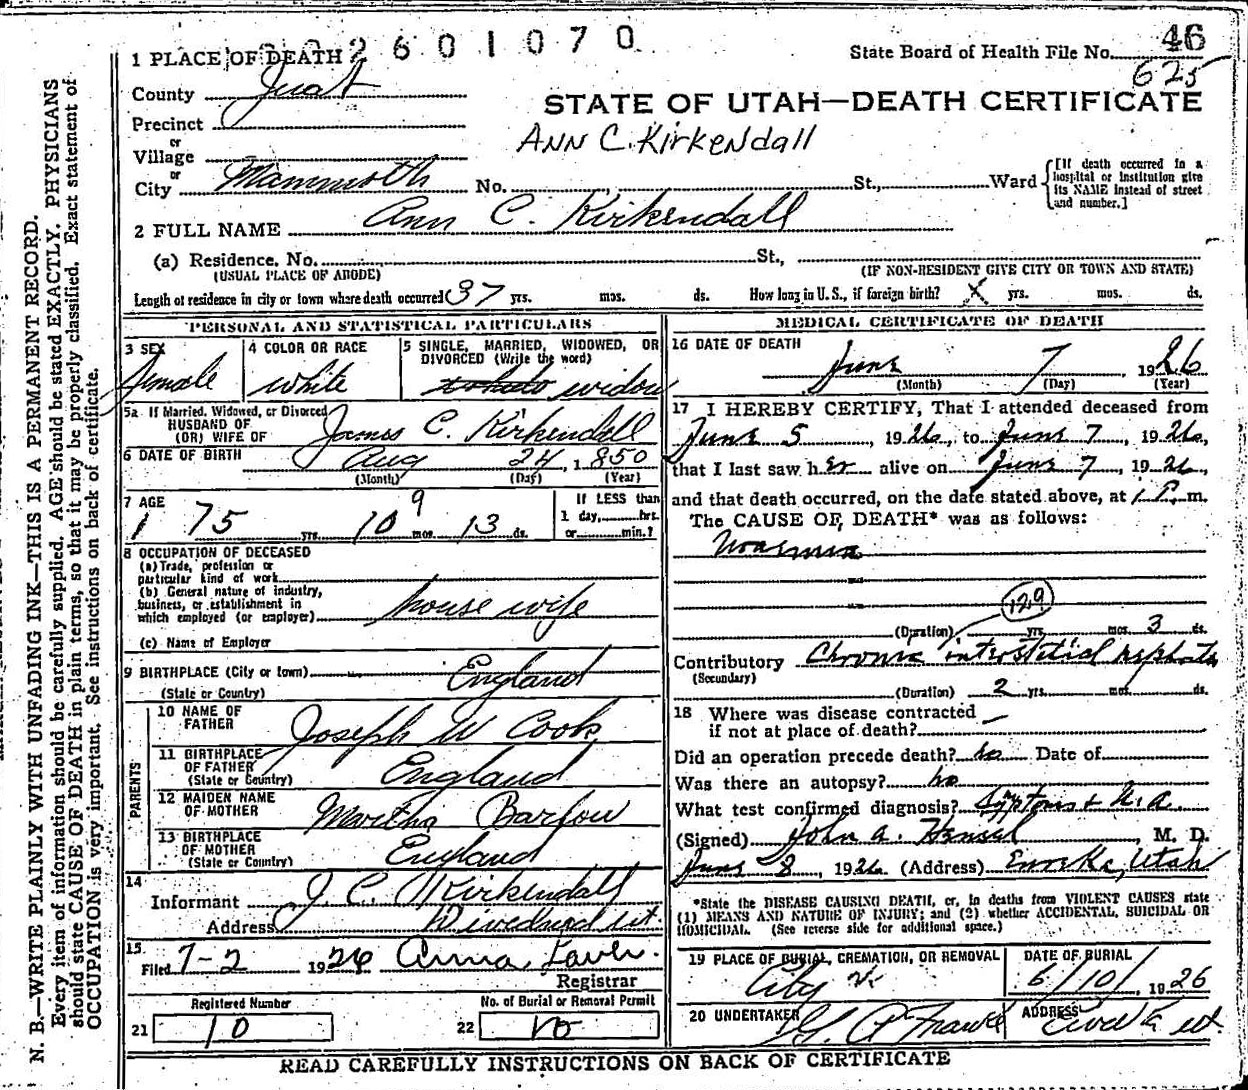 2601070
46
625
1 PLACE OF DEATH
State Board of Health File No.
County Juab
STATE OF UTAH—DEATH CERTIFICATE
Precinct
ANN C. KIRKENDALL
or
Village
or
City Mammoth No. St., Ward
[If death occurred in a
hospital or institution give
its NAME instead of street
and number.]
2 FULL NAME Ann C. Kirkendall
(a) Residence. No. St.,
(USUAL PLACE OF ABODE)
(IF NON-RESIDENT GIVE CITY OR TOWN AND STATE)
Length of residence in city or town where death occurred 37 yrs. mos. ds. How long in U. S., if foreign birth? X yrs. mos. ds.
PERSONAL AND STATISTICAL PARTICULARS
3 SEX
female
4 COLOR OR RACE
white
5 SINGLE, MARRIED, WIDOWED, OR
DIVORCED (Write the word)
widow
5a If Married, Widowed, or Divorced
HUSBAND OF
(OR) WIFE OF James C. Kirkendall
6 DATE OF BIRTH Aug 24, 1850
(Month) (Day) (Year)
7 AGE
75 yrs. 10 9 mos. 13 ds.
If LESS than
1 day, hrs.
or min.?
8 OCCUPATION OF DECEASED
(a) Trade, profession or
particular kind of work
(b) General nature of industry,
business, or establishment in
which employed (or employer) house wife
(c) Name of Employer
9 BIRTHPLACE (City or town) England
(State or Country)
PARENTS
10 NAME OF
FATHER Joseph W Cook
11 BIRTHPLACE
OF FATHER
(State or Country) England
12 MAIDEN NAME
OF MOTHER Martha Barlow
13 BIRTHPLACE
OF MOTHER
(State or Country) England
14
Informant J. C. Kirkendall
Address
15
Filed 7-2 1926 Anna
Registrar
Registered Number
21 10
No. of Burial or Removal Permit
22
MEDICAL CERTIFICATE OF DEATH
16 DATE OF DEATH
June 7 1926
(Month) (Day) (Year)
17 I HEREBY CERTIFY, That I attended deceased from
June 5, 1926, to June 7, 1926,
that I last saw her alive on June 7, 1926,
and that death occurred, on the date stated above, at 1 P. m.
The CAUSE OF DEATH* was as follows:
129
(Duration) yrs. mos. 3 ds.
Contributory Chronic interstitial nephritis
(Secondary)
(Duration) 2 yrs. mos. ds.
18 Where was disease contracted
if not at place of death?
Did an operation precede death? no Date of
Was there an autopsy? no
What test confirmed diagnosis?
(Signed) John A. Hensel, M. D.
June 8, 1926 (Address) Eureka, Utah
*State the DISEASE CAUSING DEATH, or, in deaths from VIOLENT CAUSES state
(1) MEANS AND NATURE OF INJURY; and (2) whether ACCIDENTAL, SUICIDAL OR
HOMICIDAL. (See reverse side for additional space.)
19 PLACE OF BURIAL, CREMATION, OR REMOVAL
City
DATE OF BURIAL
6/10/, 1926
20 UNDERTAKER
ADDRESS
READ CAREFULLY INSTRUCTIONS ON BACK OF CERTIFICATE
N. B.—WRITE PLAINLY WITH UNFADING INK—THIS IS A PERMANENT RECORD.
Every item of information should be carefully supplied. AGE should be stated EXACTLY. PHYSICIANS
should state CAUSE OF DEATH in plain terms, so that it may be properly classified. Exact statement of
OCCUPATION is very important. See instructions on back of certificate.